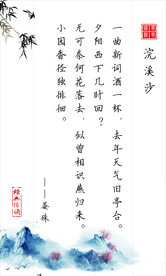 浣溪沙
一曲新词酒一杯，去年天气旧亭台。
夕阳西下几时回？
无可奈何花落去，似曾相识燕归来。
小园香径独徘徊。
——晏殊
经典